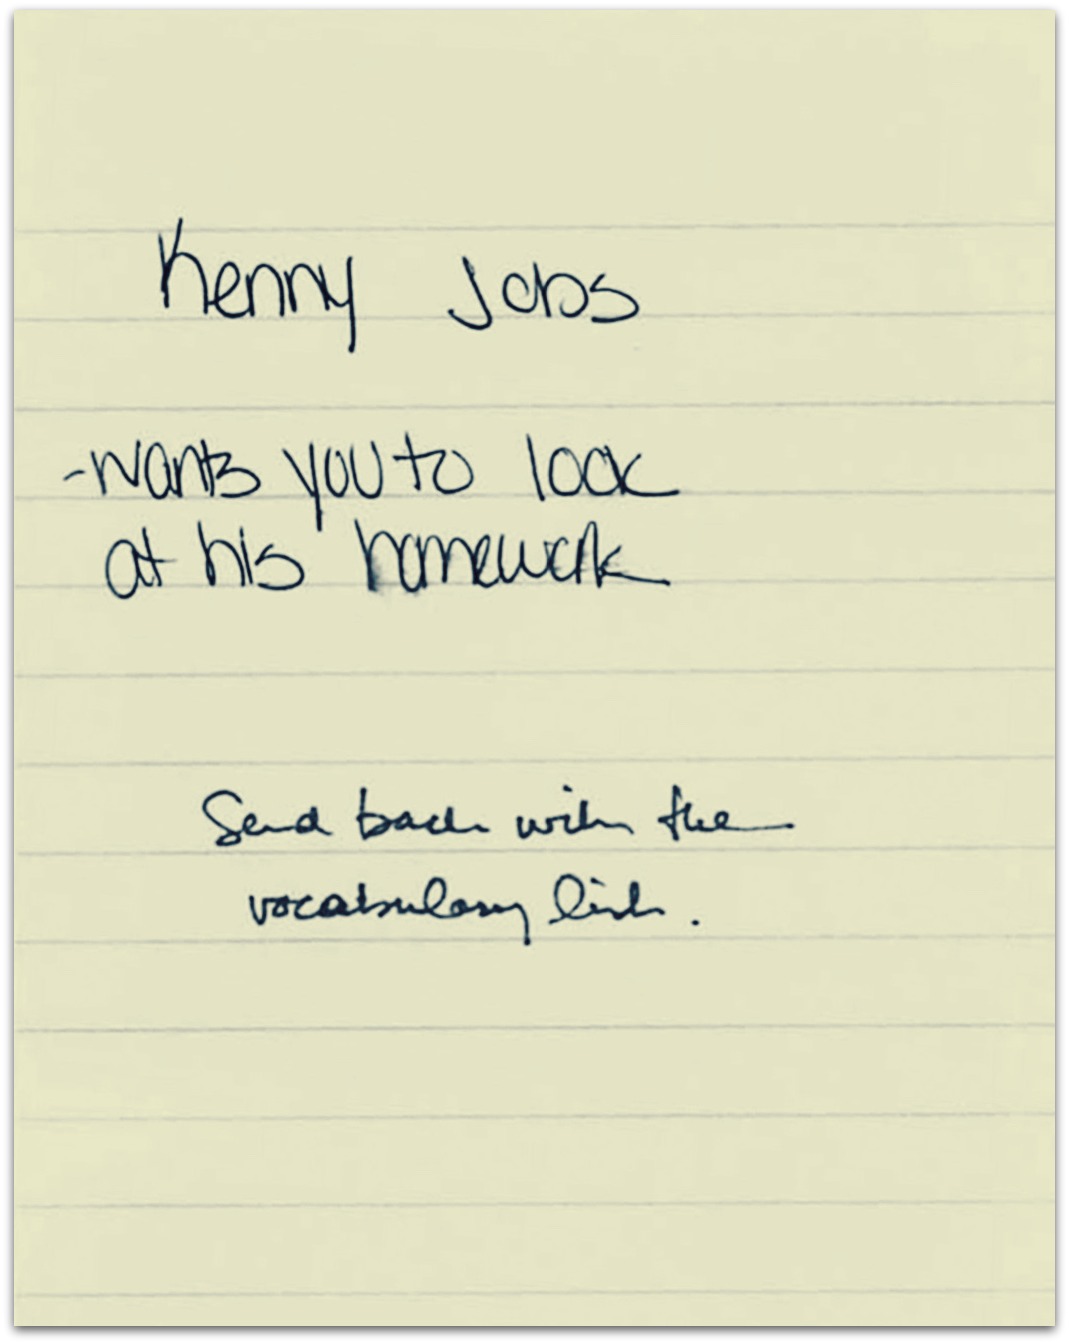 Kenny Jobs
-wants you to look
at his homework
Send back with the
vocabulary list.